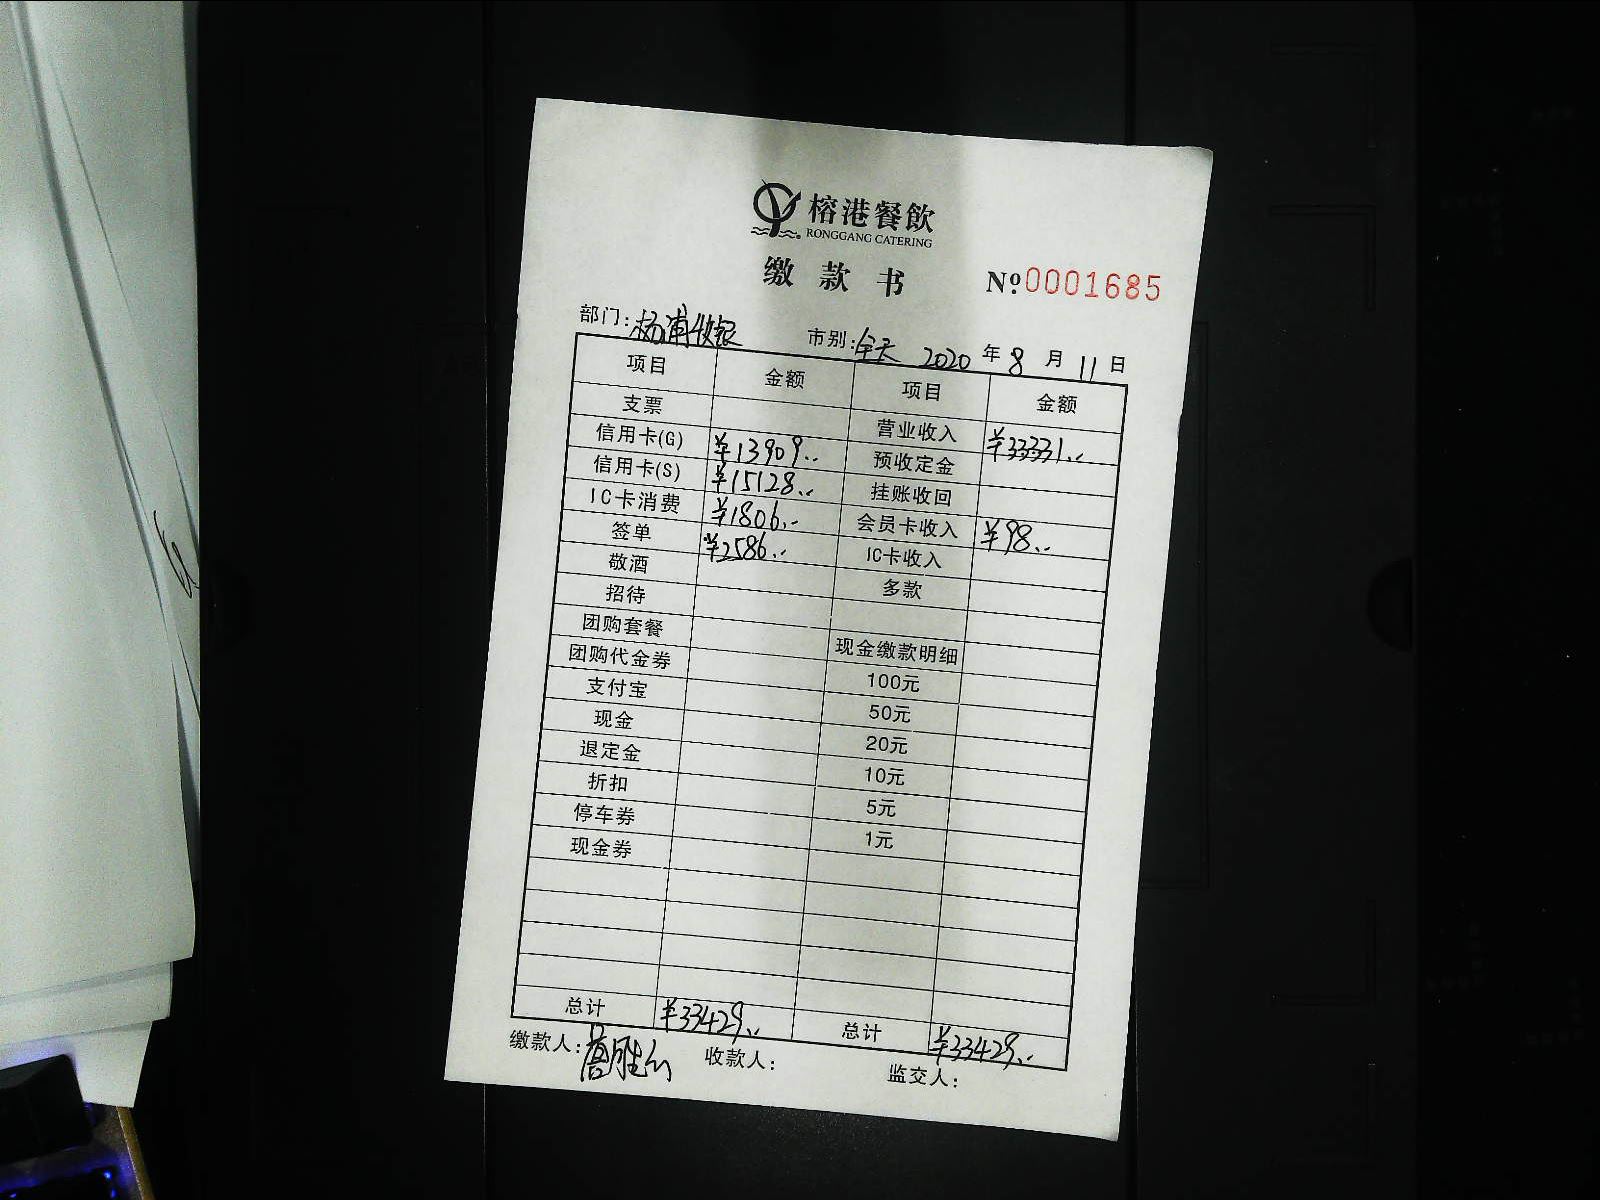 榕港餐飲
RONGGANG CATERING
缴款书 №0001685
部门:杨浦收银 市别:全天 2020年8月11日
项目 金额 项目 金额
支票 营业收入 ¥33331..
信用卡(G) ¥13909.. 预收定金
信用卡(S) ¥15128.. 挂账收回
IC卡消费 ¥1806.. 会员卡收入 ¥98..
签单 ¥2586.. IC卡收入
敬酒 多款
招待
团购套餐 现金缴款明细
团购代金券 100元
支付宝 50元
现金 20元
退定金 10元
折扣 5元
停车券 1元
现金券
总计 ¥33429.. 总计 ¥33429..
缴款人: 收款人: 监交人: